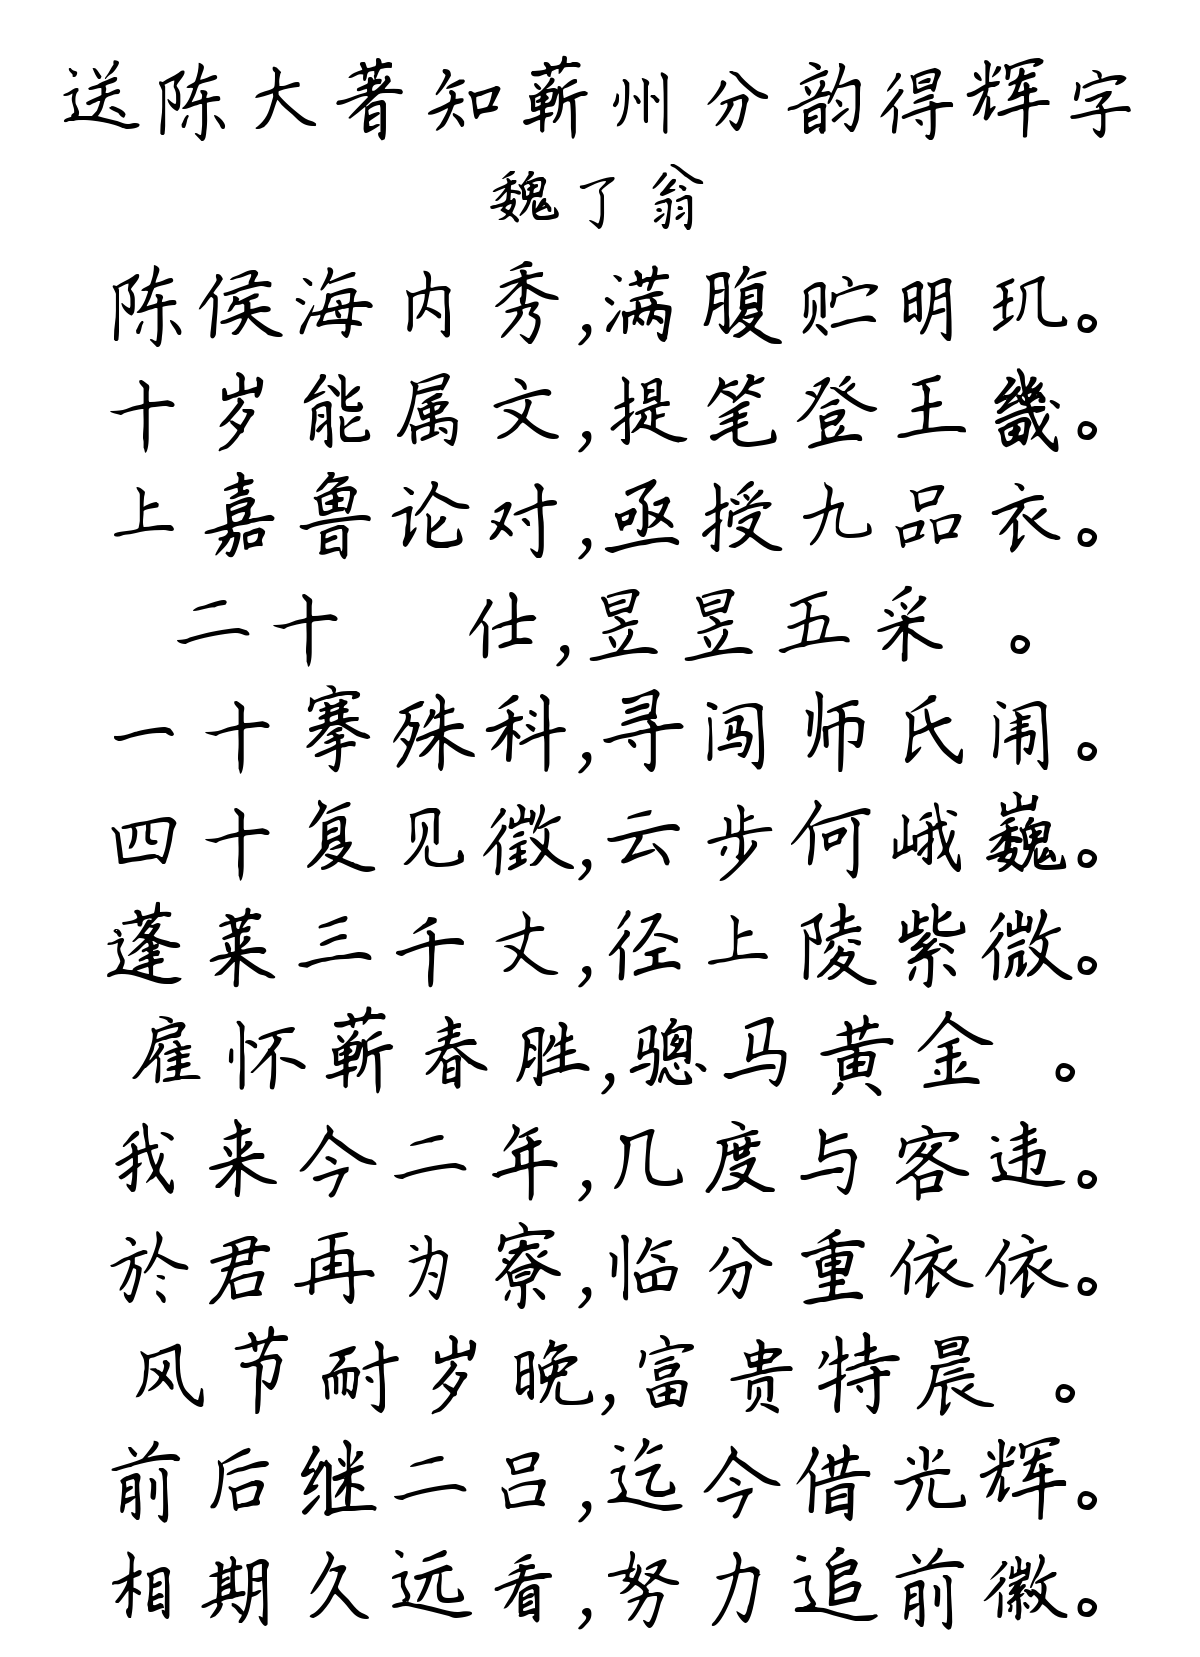 送陈大著知蕲州分韵得辉字
魏了翁
陈侯海内秀,满腹贮明玑。
十岁能属文,提笔登王畿。
上嘉鲁论对,亟授九品衣。
二十 仕,昱昱五采 。
一十搴殊科,寻闯师氏闱。
四十复见徵,云步何峨巍。
蓬莱三千丈,径上陵紫微。
雇怀蕲春胜,骢马黄金 。
我来今二年,几度与客违。
於君再为寮,临分重依依。
风节耐岁晚,富贵特晨 。
前后继二吕,迄今借光辉。
相期久远看,努力追前徽。